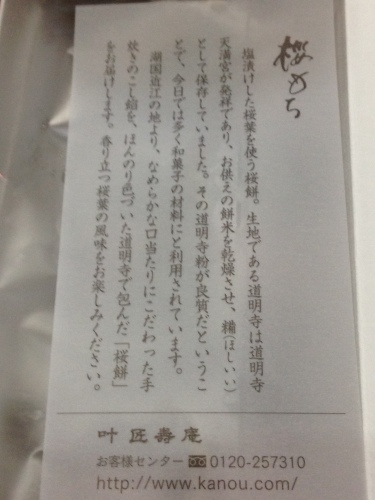 桜もち
塩漬けした桜葉を使う桜餅。生地である道明寺は道明寺
天満宮が発祥であり、お供えの餅米を乾燥させ、糒(ほしいい)
として保存していました。その道明寺粉が良質だというこ
とで、今日では多く和菓子の材料にと利用されています。
湖国近江の地より、なめらかな口当たりにこだわった手
炊きのこし餡を、ほんのり色づいた道明寺で包んだ「桜餅」
をお届けします。香り立つ桜葉の風味をお楽しみください。
叶 匠壽庵
お客様センター 0120-257310
http://www.kanou.com/